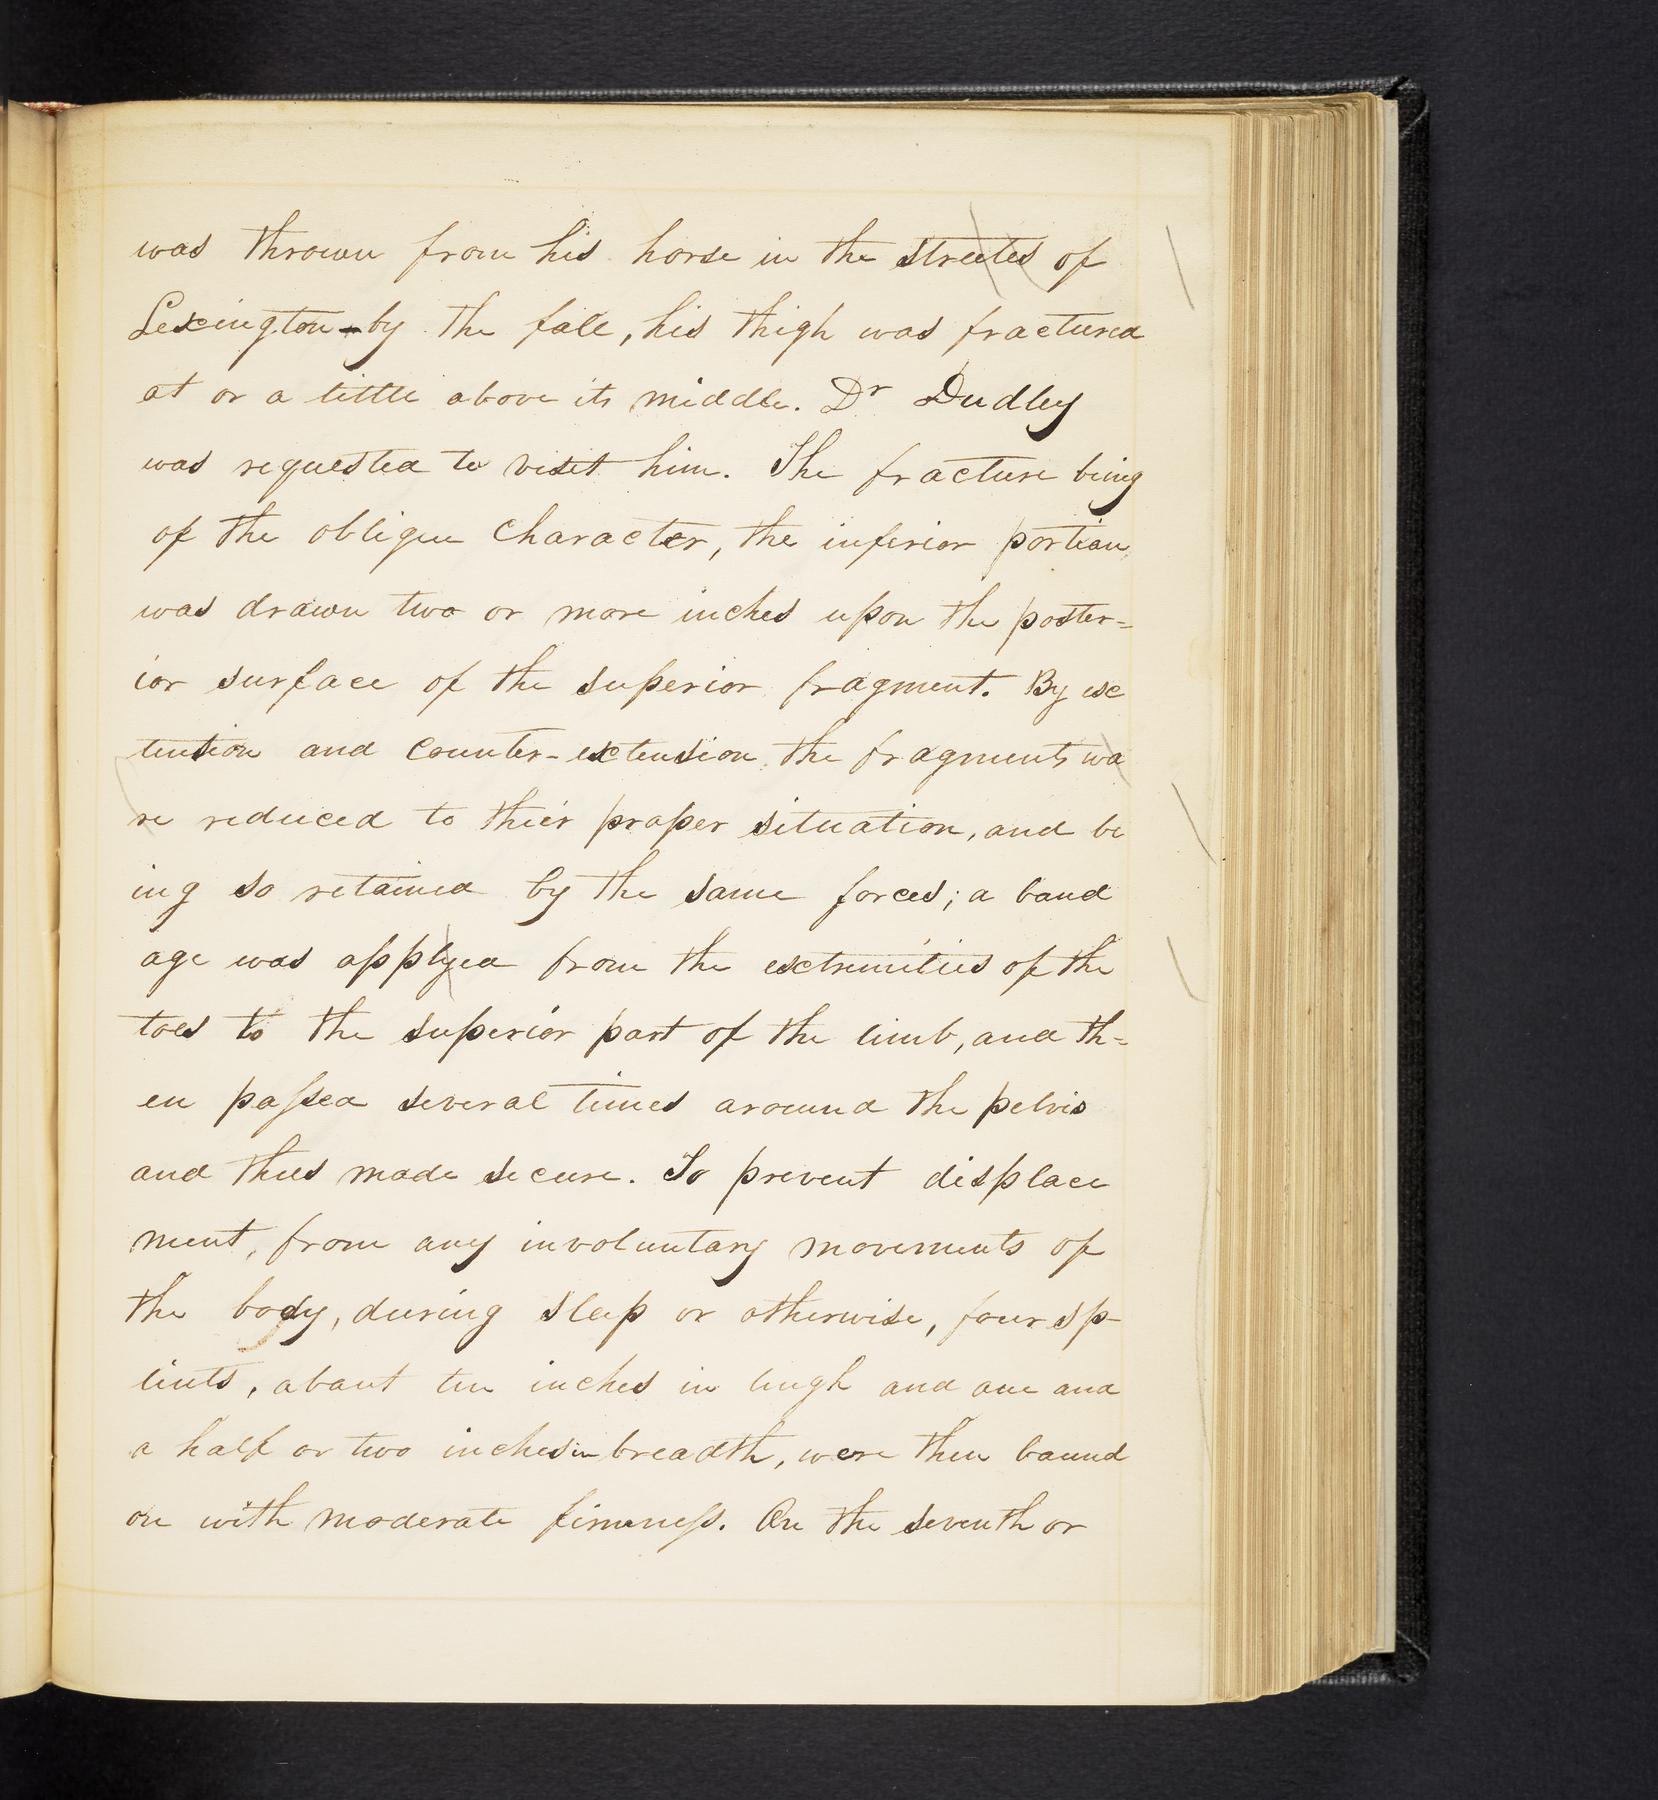 was thrown from his horse in the streetes of
Lexington - by the fall, his thigh was fractured
at or a little above its middle. Dr Dudley
was requested to visit him. The fracture being
of the oblique Character, the inferior portion
was drawn two or more inches upon the poster=
ior surface of the superior fragment. By ex
tension and Counter-extension the fragments wa
re reduced to thier proper situation, and be
ing so retained by the same forces; a band
age was applyed from the extremities of the
toes to the superior part of the limb, and th=
en passed several times around the pelvis
and thus made secure. To prevent displace
ment, from any involuntary movements of
the body, during sleep or otherwise, four sp-
lints, about ten inches in lengh and one and
a half or two inches in breadth, were then bound
on with moderate firmness. On the seventh or